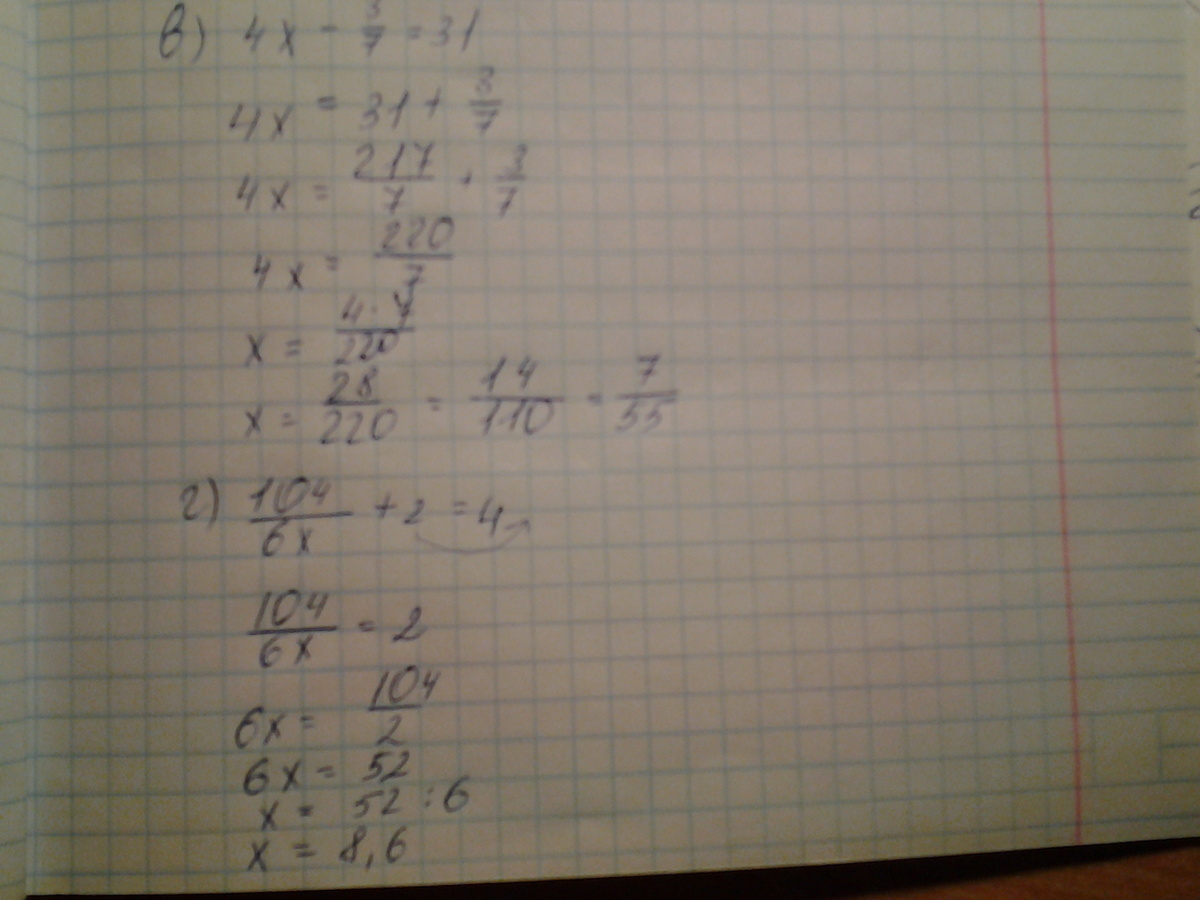 в) 4x - 3/7 = 31
4x = 31 + 3/7
4x = 217/7 + 3/7
4x = 220/7
x = 4·7/220
x = 28/220 = 14/110 = 7/55
г) 104/6x + 2 = 4
104/6x = 2
6x = 104/2
6x = 52
x = 52 : 6
x = 8,6